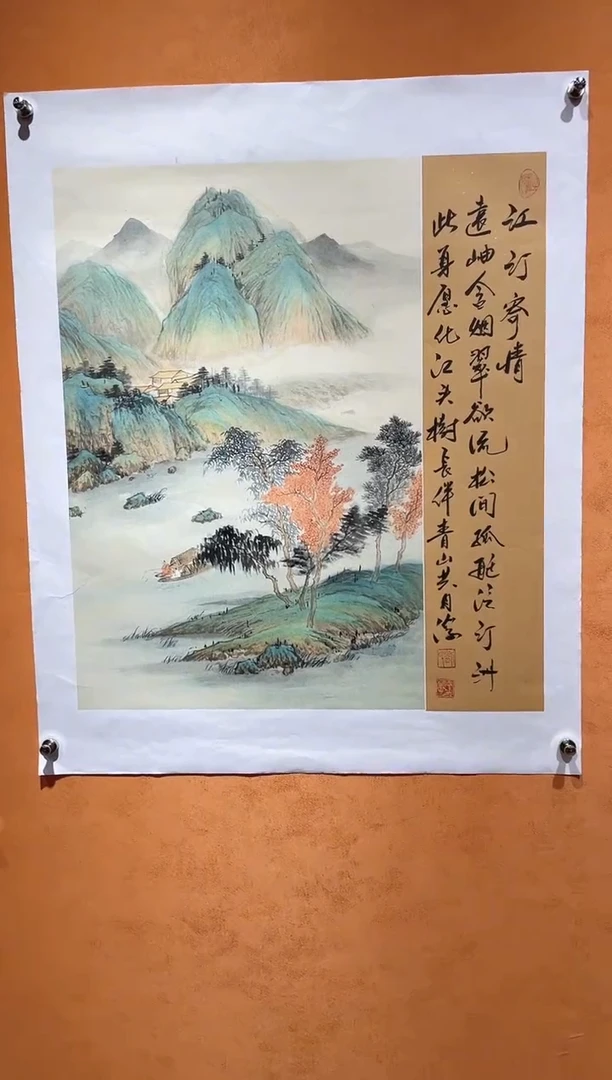 江汀寄情
遠岫含烟翠欲流松间孤艇泛汀洲
此身愿化江头樹長伴青山共月